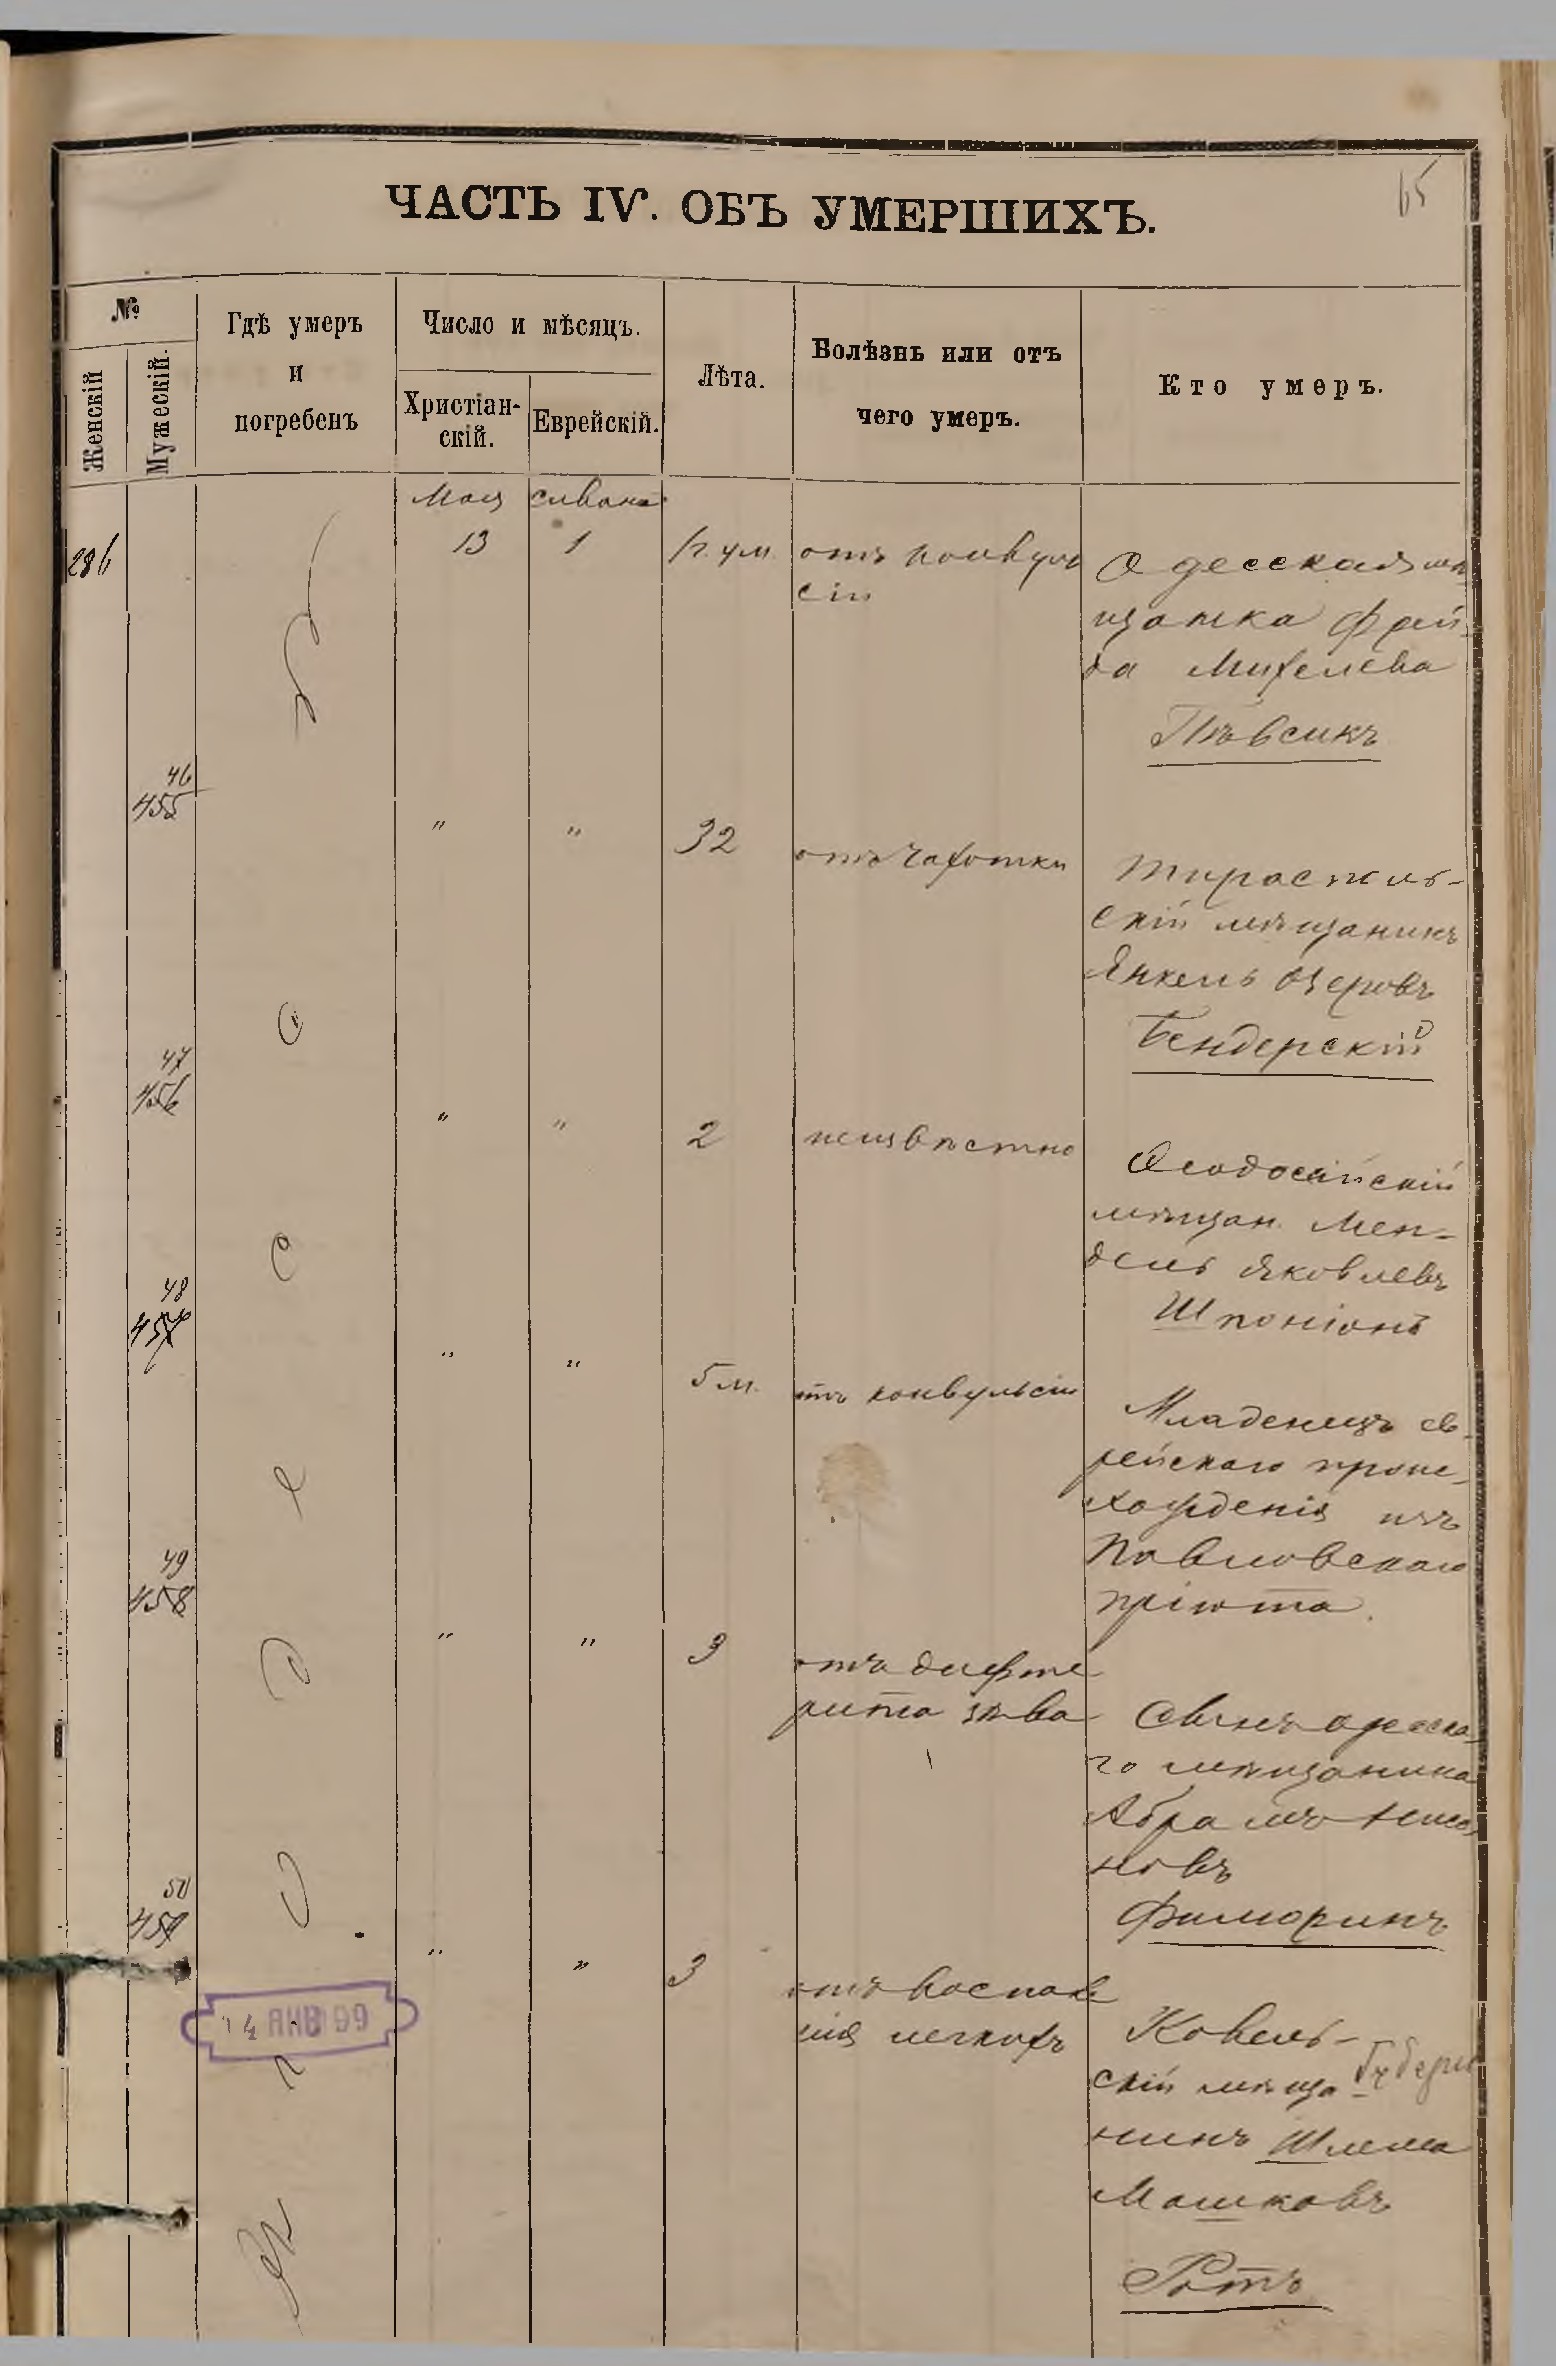 65
ЧАСТЬ IV. ОБЪ УМЕРШИХЪ.
№
Женскій
Мужескій.
Гдѣ умеръ
и
погребенъ
Число и мѣсяцъ.
Христіан-
скій.
Еврейскій.
Лѣта.
Болѣзнь или отъ
чего умеръ.
Кто умеръ.
Мая
сивана
286
13
1
1 г. 4 м
отъ конвуль
сіи
Одесская мѣ
щанка Фрей-
да Михелева
Пѣвсикъ
46
455
"
"
32
отъ чахотки
Тирасполь-
скій мѣщанинъ
Янкель Озеровъ
Бендерскій
47
456
"
"
2
неизвѣстно
Ѳеодосійскій
мѣщан. Мен-
дель Яковлевъ
Шпоніонъ
48
457
"
"
5 м.
отъ конвульсіи
Младенецъ ев-
рейскаго проис-
хожденія изъ
Павловскаго
пріюта.
49
458
"
"
3
отъ дифте
рита зѣва
Сынъ одесска-
го мѣщанина
Абрамъ Нисо
новъ
Фиморинъ
50
459
"
"
3
отъ воспале
нія легкихъ
Ковель-
скій мѣща
нинъ Шлема
Мошковъ
Ротъ
14 ЯНВ 99